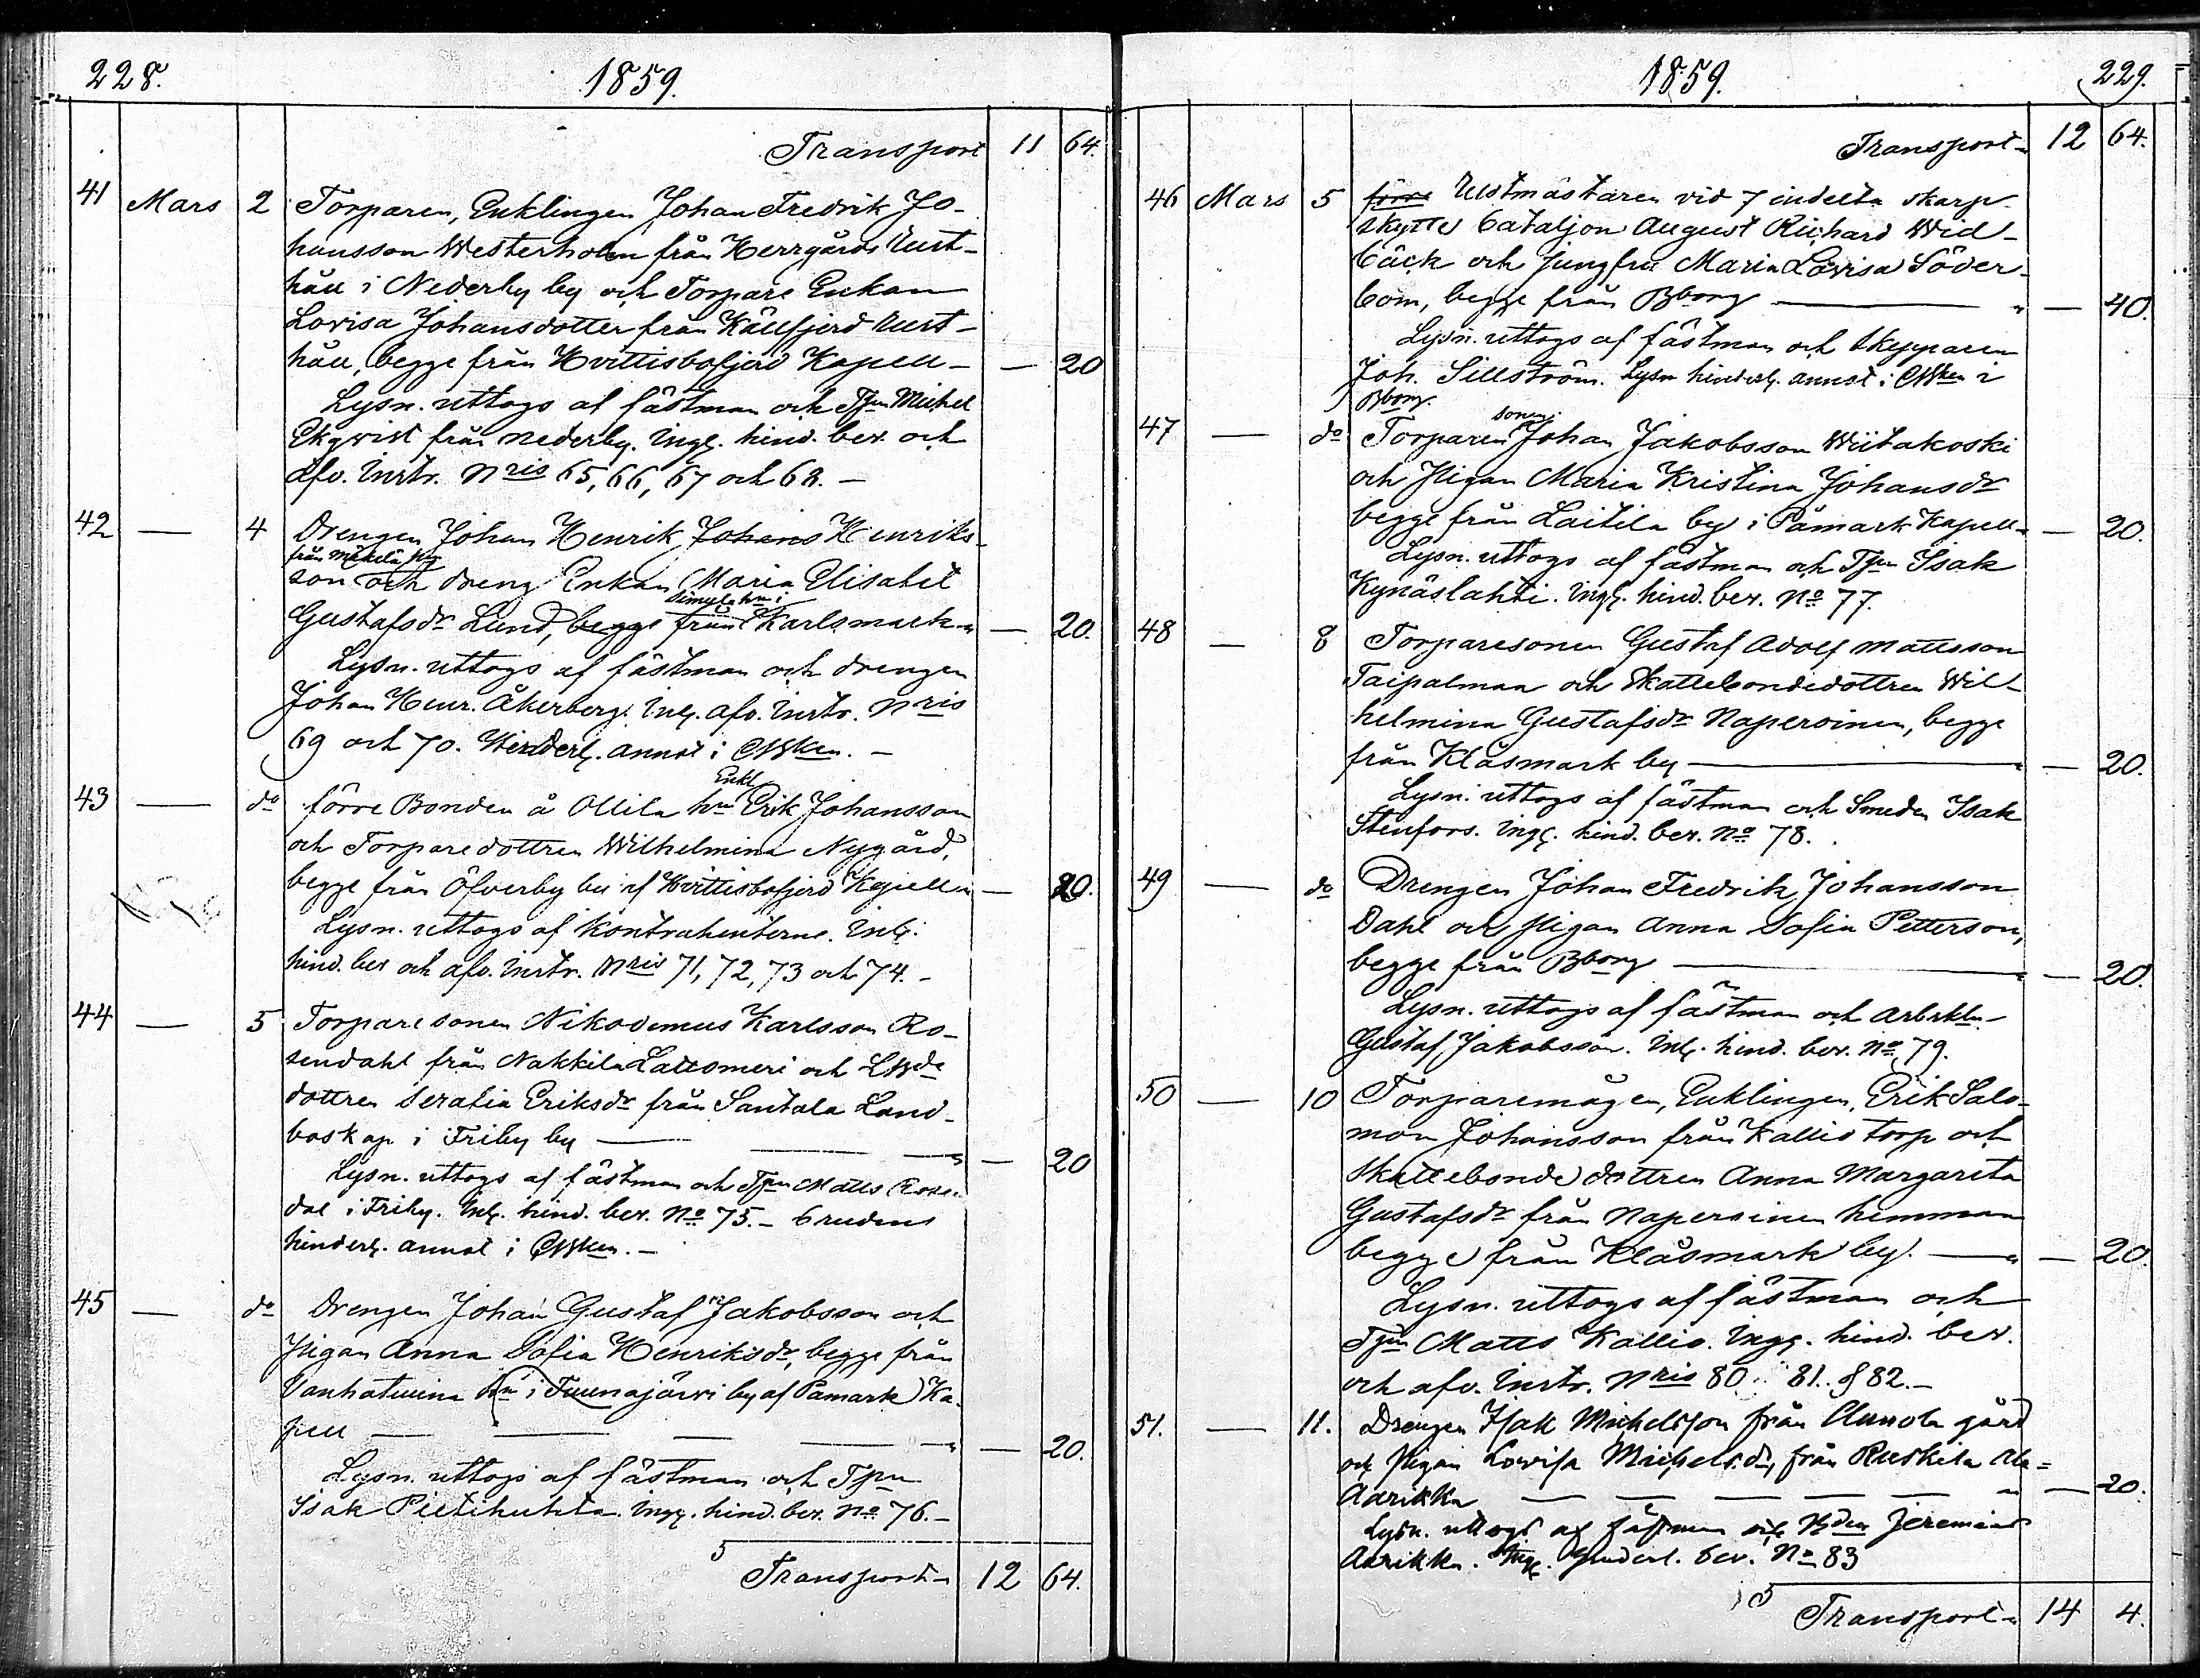 228. 1859.
Transport 11 64.
41 Mars 2 Torparen, Enklingen Johan Fredrik Jo-
hansson Westerholm från Herrgårds Rust-
håll i Nederby by och Torpare Enkan
Lovisa Johansdotter från Källfjerd Rust-
håll, begge från Hvittisbofjerd Kapell — 20
Lysn. uttogs af fästman och Tpn Michel
Ekqvist från Nederby. Ingg. hind. bev. och
afv. Instr. Nris 65, 66, 67 och 68. —
42 — 4 Drengen Johan Henrik Johans Henriks-
från Mäkelä
son och dreng Enkan Maria Elisabet
hm i
Gustafsdr Lund, begge från Karlsmark — 20.
Lysn. uttogs af fästman och drengen
Johan Henr. Åkerberg. Ing. afv. Instr. Nris
69 och 70. Hinderl. annot i
43 — do förre Bonden å Ollila hm Enkl Erik Johansson
och Torparedottren Wilhelmina Nygård,
begge från Öfverby by af Hvittisbofjerd Kapell — 20.
Lysn. uttogs af Kontrahenterne. Ing.
hind. bev och afv. Instr. Nris 71, 72, 73 och 74. —
44 — 5 Torparesonen Nikodemus Karlsson Ro-
sendahl från Nakkila Lattomeri och
dottren Serafia Eriksdr från Santala Land-
boskap i Friby by — 20
Lysn. uttogs af fästman och Tpn Matts Rosen-
dal i Friby. Ing. hind. bev. No 75. — brudens
hinderl. annot i
45 — do Drengen Johan Gustaf Jakobsson och
Pigan Anna Sofia Henriksdr, begge från
Vanhatuina hm i Tuunajärvi by af Påmark Ka-
pell — 20.
Lysn. uttogs af fästman och Tpn
Isak Pietikuhta. Ingg. hind. bev. No 76. —
Transport 12 64.
1859. 229.
Transport 12 64.
46 Mars 5 förre Rustmästaren vid 7 indelta skarp-
skytte bataljon August Richard Wid-
bäck och Jungfru Maria Lovisa Söder-
bom, begge från Bborg — 40.
Lysn. uttogs af fästman och skepparen
Joh. Sillström. Lysn hinderl. annot i i
Bborg.
47 — do Torparesonen Johan Jakobsson Wiitakoski
och Pigan Maria Kristina Johansdr
begge från Laitila by i Påmark Kapell — 20.
Lysn. uttogs af fästman och Tpn Isak
Kynäslahti. Ingg. hind. bev. No 77.
48 — 8 Torparesonen Gustaf Adolf Mattsson
Taipalmaa och Skattebondedottren Wil-
helmina Gustafsdr Naperoinen, begge
från Klåsmark by — 20.
Lysn. uttogs af fästman och Smeden Isak
Stenfors. Ingg. hind. bev. No 78.
49 — do Drengen Johan Fredrik Johansson
Dahl och Pigan Anna Sofia Petterson,
begge från Bborg — 20.
Lysn. uttogs af fästman och Arbskln
Gustaf Jakobsson. Ing. hind. bev. No 79.
50 — 10 Torparemågen, Enklingen, Erik Salo-
mon Johansson från Kallio torp och
Skattebonde dottren Anna Margareta
Gustafsdr från Naperoinen hemman
begge från Klåsmark by. — 20.
Lysn. uttogs af fästman och
Tpn Matts Kallio. Ingg. hind. bev.
och afv. Instr. Nris 80. 81. & 82. —
51. — 11. Drengen Isak Michelsson från Annola gård
och Pigan Lovisa Michelsdr, från Ruskila Ala-
Aarikka — 20.
Lysn. uttogs af fästman och Bden Jeremias
Aarikka. Ingg. hinderl. bev. No 83
Transport 14 4.